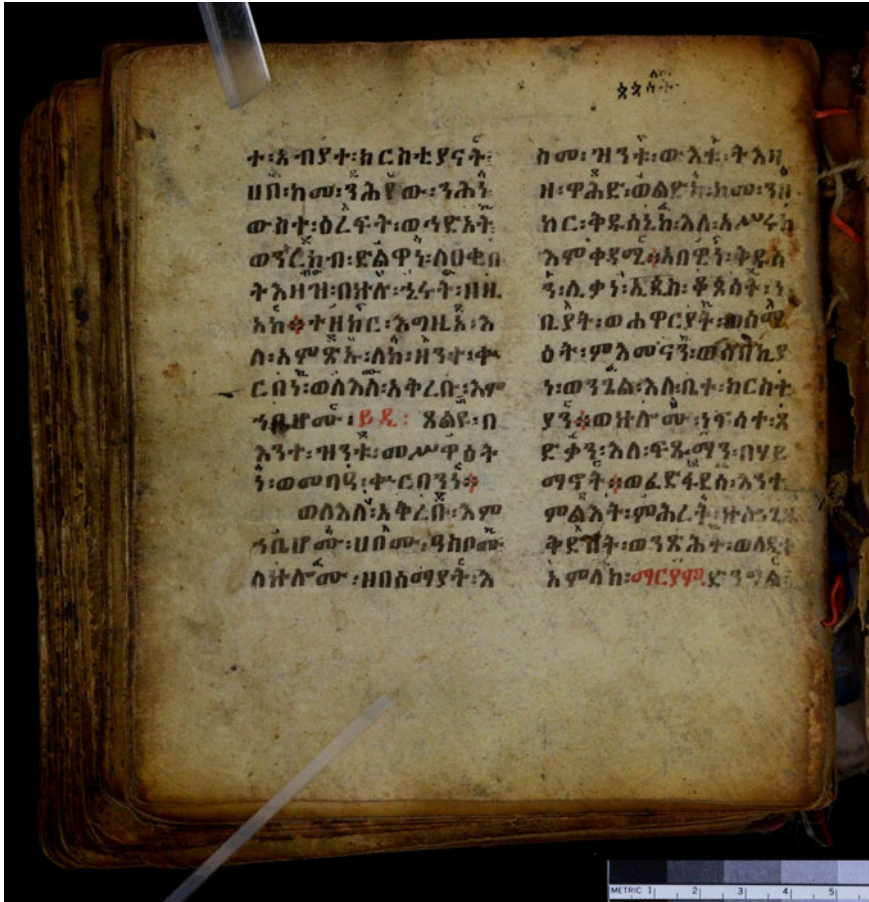 ተ፡አብያተ፡ክርስቲያናት፡
ሀበ፡ከመ፡ንሕየው፡ንሕነ
ውስተ፡ዕረፍት፡ወኅድአት
ወንርከብ፡ድልዋነ፡ለዐቂበ
ትእዛዝ፡በኵሉ፡ኂሩት፡ዘዚ
አከ፨ተዘከር፡እግዚኦ፡እ
ለ፡አምጽኡ፡ለከ፡ዘንተ፡ቍ
ርበነ፡ወለእለ፡አቅረቡ፡እም
ኀቤሆሙ፡ይዲ፡ጸልዩ፡በ
እንተ፡ዝንቱ፡መሥዋዕት
ነ፡ወመባዓ፡ቍርባንነ፨
ወለእለ፡አቅረቡ፡እም
ኀቤሆሙ፡ሀቦሙ፡ዓስቦሙ
ለኵሎሙ፡ዘበሰማያት፡እ
ስመ፡ዝንቱ፡ውእቱ፡ትእዛ
ዘ፡ዋሕድ፡ወልድከ፡ከመ፡ንዘ
ከር፡ቅዱሳኒከ፡እለ፡አሥመሩከ
እምቀዳሚ፨አበዊነ፡ቅዱሳ
ን፡ሊቃነ፡ኤጲስ፡ቆጶሳት፡ነ
ቢያት፡ወሐዋርያት፡ወሰማ
ዕት፡ምእመናን፡ወሰባክያ
ነ፡ወንጌል፡እለ፡ቤተ፡ክርስቲ
ያን፨ወኵሎሙ፡ነፍሳተ፡ጻ
ድቃን፡እለ፡ፍጹማን፡በሃይ
ማኖት፨ወፈድፋደሰ፡እንተ
ምልእት፡ምሕረት፡
ቅድስት፡ወንጽሕት፡ወላዲተ
አምላክ፡ማርያም፡ድንግል፡